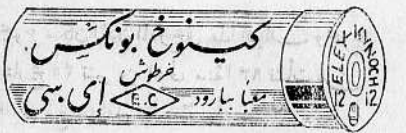 كينوخ بونكس
خرطوش
معبا ببارود E.C إي سي
ELEY-KYNOCH
12 12